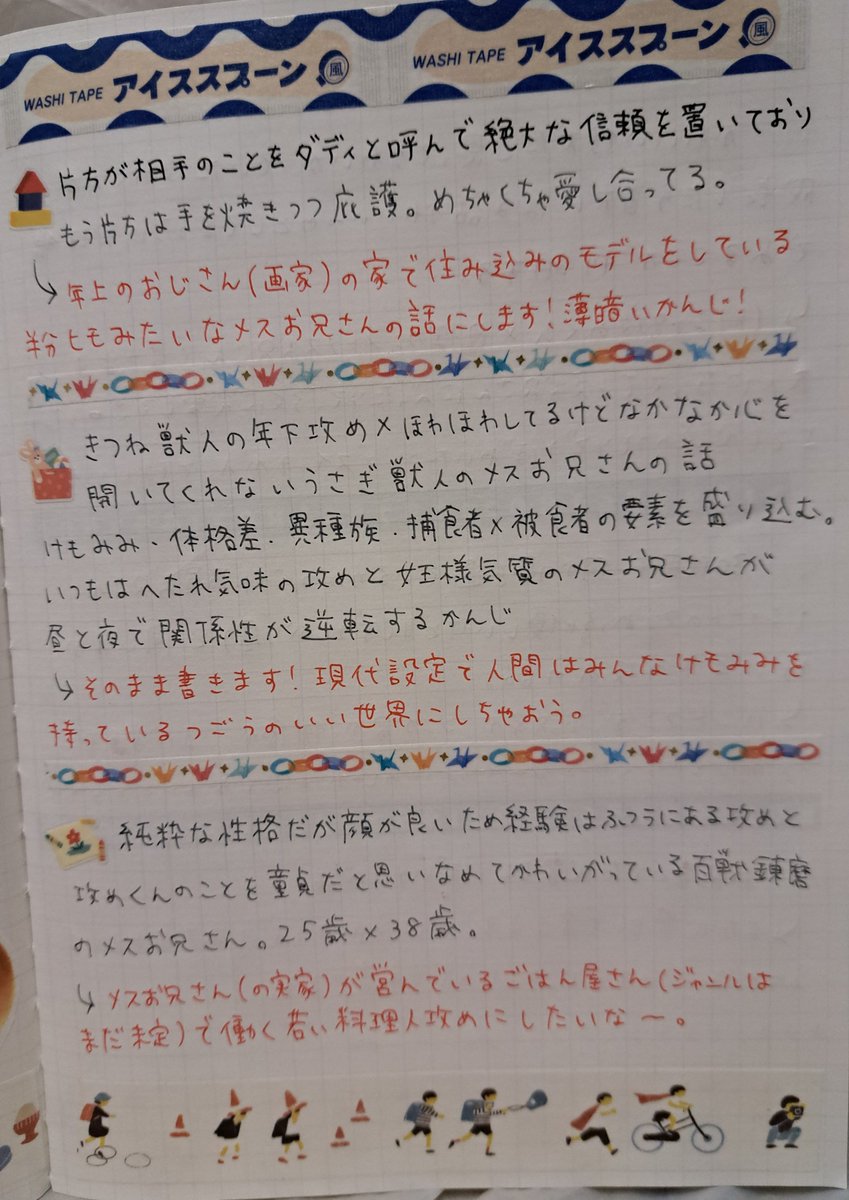 WASHI TAPE アイススプーン 風 WASHI TAPE アイススプーン 風
片方が相手のことをダディと呼んで絶大な信頼を置いており
もう片方は手を焼きつつ庇護。めちゃくちゃ愛し合ってる。
↳年上のおじさん(画家)の家で住み込みのモデルをしている
半分ヒモみたいなメスお兄さんの話にします!薄暗いかんじ!
きつね獣人の年下攻め×ほわほわしてるけどなかなか心を
開いてくれないうさぎ獣人のメスお兄さんの話
けもみみ・体格差・異種族・捕食者×被食者の要素を盛り込む。
いつもはへたれ気味の攻めと女王様気質のメスお兄さんが
昼と夜で関係性が逆転するかんじ
↳そのまま書きます!現代設定で人間はみんなけもみみを
持っているつごうのいい世界にしちゃおう。
純粋な性格だが顔が良いため経験はふつうにある攻めと
攻めくんのことを童貞だと思いなめてかわいがっている百戦錬磨
のメスお兄さん。25歳×38歳。
↳メスお兄さん(の実家)が営んでいるごはん屋さん(ジャンルは
まだ未定)で働く若い料理人攻めにしたいな〜。